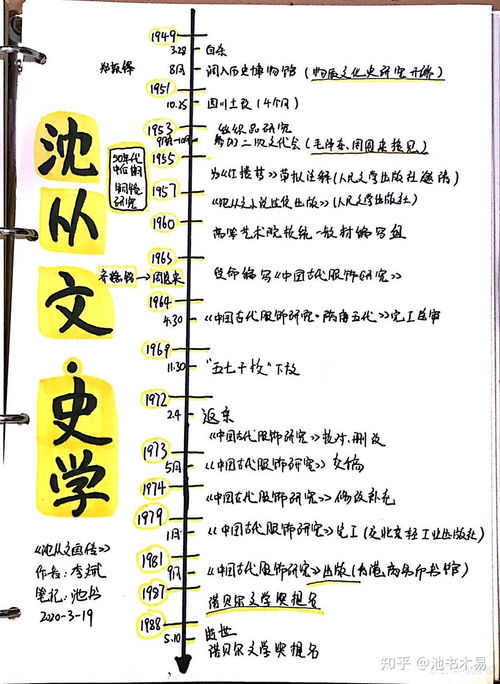 沈从文·史学
1949
3.28 自杀
郑振铎
8月 调入历史博物馆(物质文化史研究开始)
1951
10.25 四川土改(4个月)
1953 丝织品研究
9月-10月 参加二次文代会(毛泽东、周恩来接见)
50年代
中后期
铜镜
研究
1955
为《红楼梦》草拟注释(人民文学出版社邀请)
1957
《沈从文小说选集出版》(人民文学出版社)
1960
高等艺术院校统一教材编写组
1963
齐燕铭→周恩来 受命编写《中国古代服饰研究》
1964
4.30 《中国古代服饰研究·隋唐五代》完工送审
1969
11.30 "五七干校"下放
1972
2.4 返京
《中国古代服饰研究》校对、删改
1973
5月 《中国古代服饰研究》交稿
1974
《中国古代服饰研究》修改补充
1979
1月 《中国古代服饰研究》完工(交北京轻工业出版社)
1981
9月 《中国古代服饰研究》出版(香港商务印书馆)
1987
诺贝尔文学奖提名
1988
5.10 逝世
诺贝尔文学奖提名
《沈从文画传》
作者:李斌
笔记:池书
2020-3-19
知乎 @池书木易